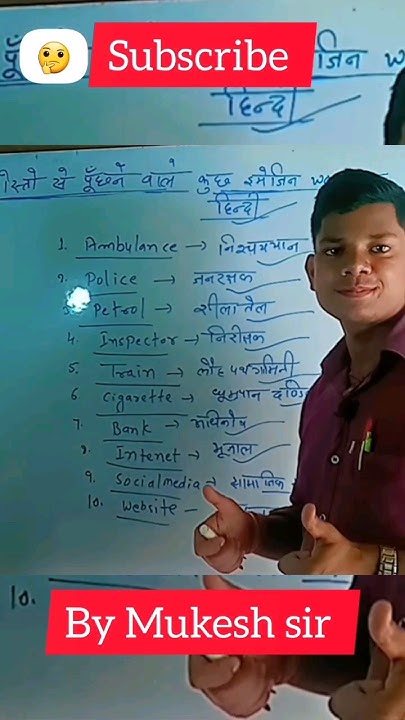 Subscribe
मेजिन w
हिन्दी
दोस्तो से पूँछने वाले कुछ इमेजिन wo
हिन्दी
1. Ambulance → निश्चययान
2. Police → जनरक्षक
3. Petrol → शीलातैल
4. Inspector → निरीक्षक
5. Train → लौह पथ गामिनी
6. Cigarette → धूम्रपान दंडि
7. Bank →
8. Intenet →
9. Socialmedia → सामाजिक
10. Website –
10.
By Mukesh sir